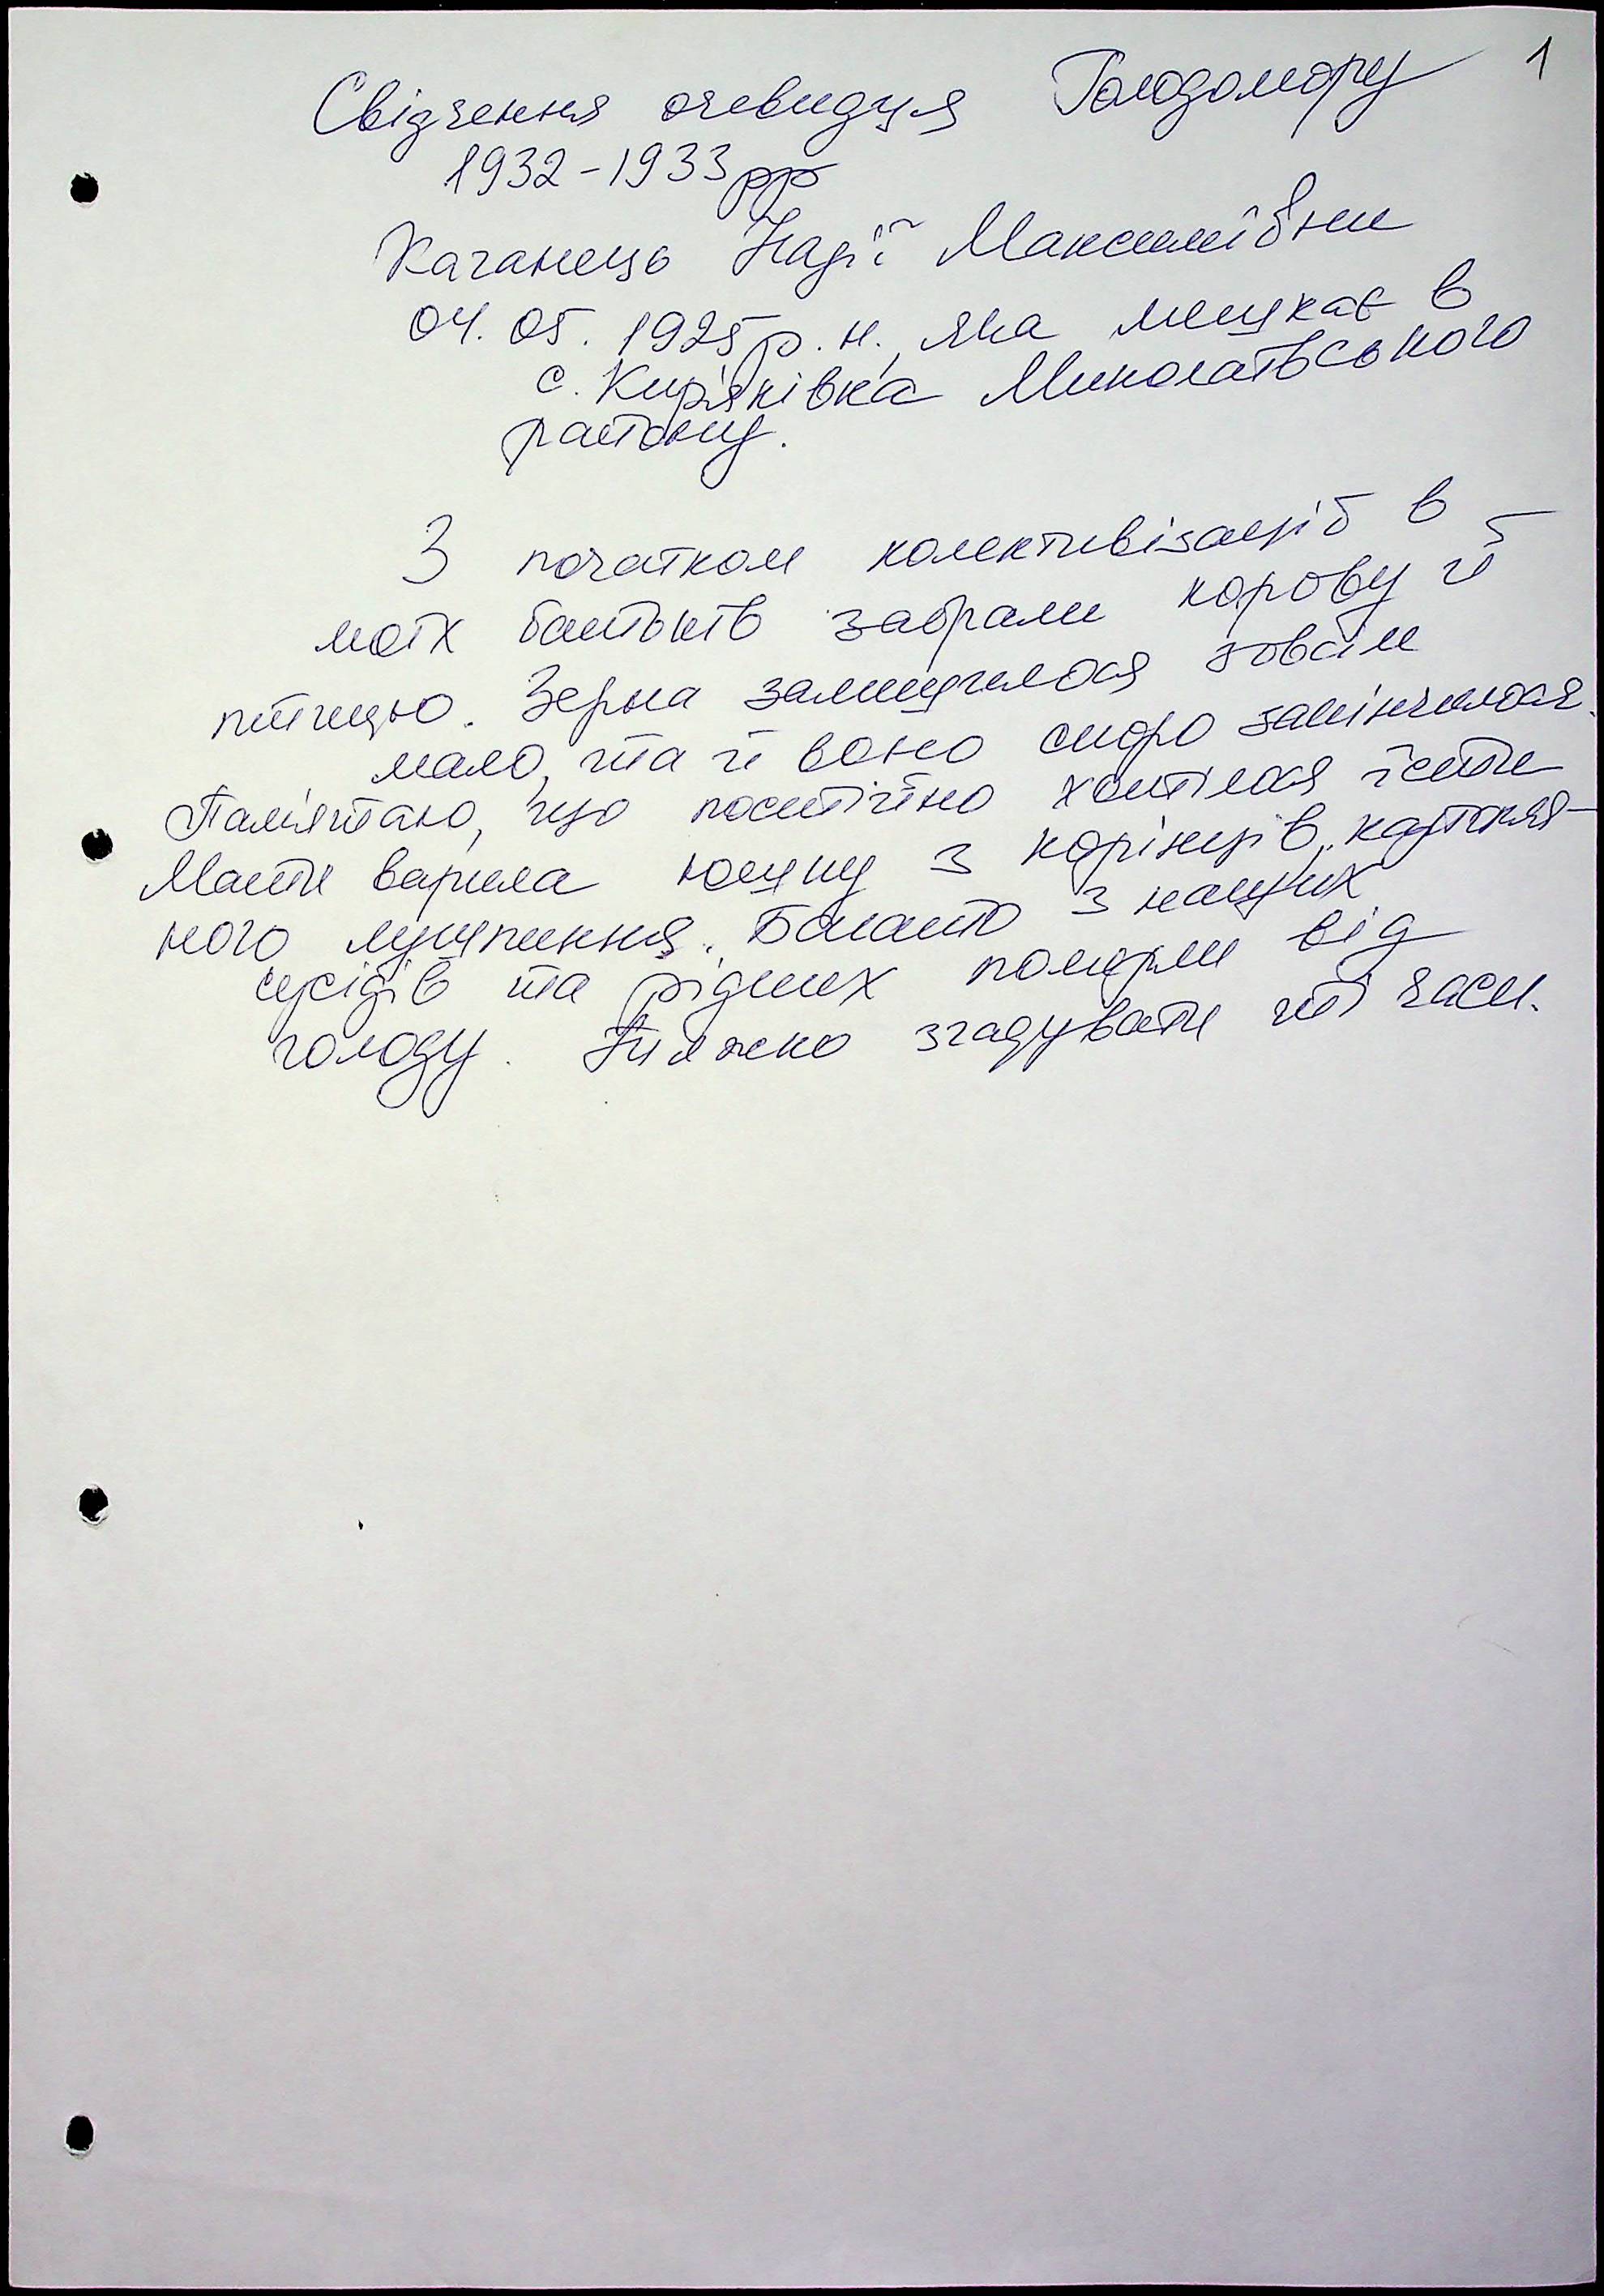 1
Свідчення очевидця Голодомору
1932-1933 рр
Каганець Надії Максимівни
04. 05. 1925 р. н., яка мешкає в
с. Кир'яківка Миколаївського
району.
З початком колективізації в
моїх батьків забрали корову й
птицю. Зерна залишилося зовсім
мало, та й воно скоро закінчилося.
Пам'ятаю, що постійно хотілося їсти
Мати варила юшку з корінців, картопля-
ного лушпиння. Багато з наших
сусідів та рідних померли від
голоду. Тяжко згадувати ті часи.